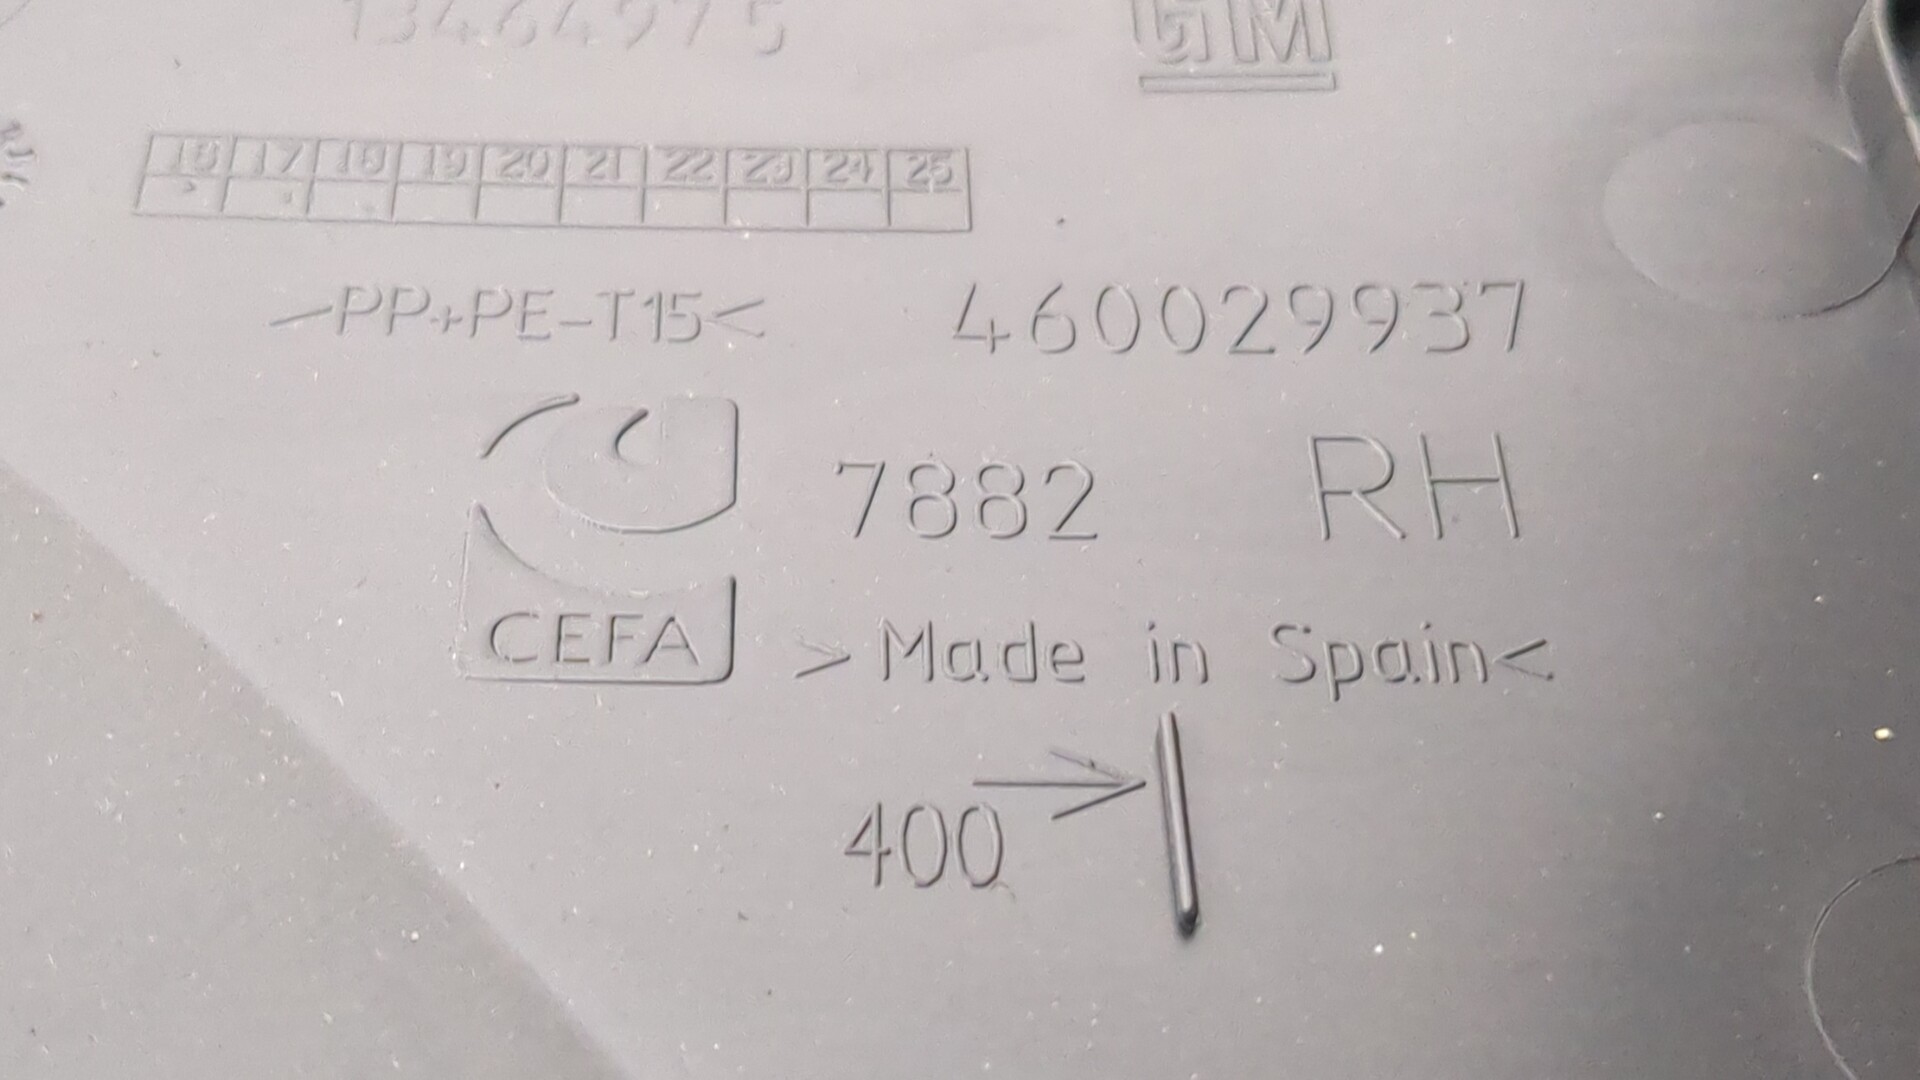 13464975 GM
16 17 18 19 20 21 22 23 24 25
>PP+PE-T15< 460029937
7882 RH
CEFA >Made in Spain<
400